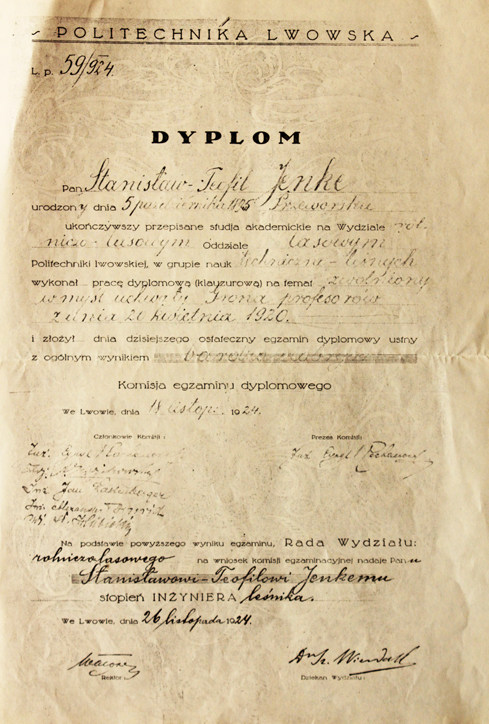 POLITECHNIKA LWOWSKA
L. p. 59/924.
DYPLOM
Pan Stanisław-Teofil Jenke
urodzony dnia 5 października 1895 Przeworsku
ukończywszy przepisane studja akademickie na Wydziale rol-
niczo-lasowym Oddziale lasowym
Politechniki lwowskiej, w grupie nauk techniczno-leśnych
wykonał pracę dyplomową (klauzurową) na temat zwolniony
w myśl uchwały Grona profesorów
z dnia 20 kwietnia 1920.
i złożył dnia dzisiejszego ostateczny egzamin dyplomowy ustny
z ogólnym wynikiem
Komisja egzaminu dyplomowego
We Lwowie, dnia listop. 1924.
Członkowie Komisji: Prezes Komisji:
Inż. Inż.
Inż. Jan
Na podstawie powyższego wyniku egzaminu, Rada Wydziału:
rolniczolasowego na wniosek komisji egzaminacyjnej nadaje Panu
Stanisławowi-Teofilowi Jenkemu
stopień INŻYNIERA leśnika.
We Lwowie, dnia 26 listopada 1924.
Rektor: Dziekan Wydziału: